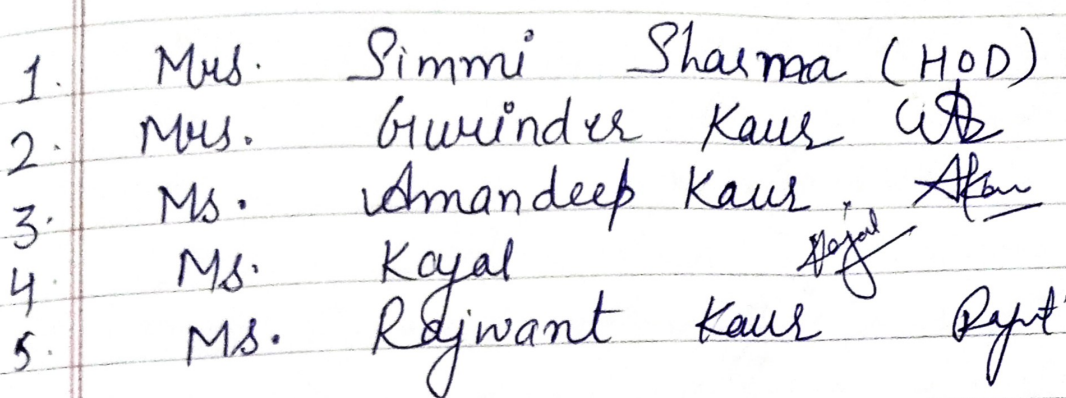 1. Mrs. Simmi Sharma (HOD)
2. Mrs. Gurinder Kaur
3. Ms. Amandeep Kaur.
4. Ms. Kajal Kajal
5. Ms. Rajwant Kaur